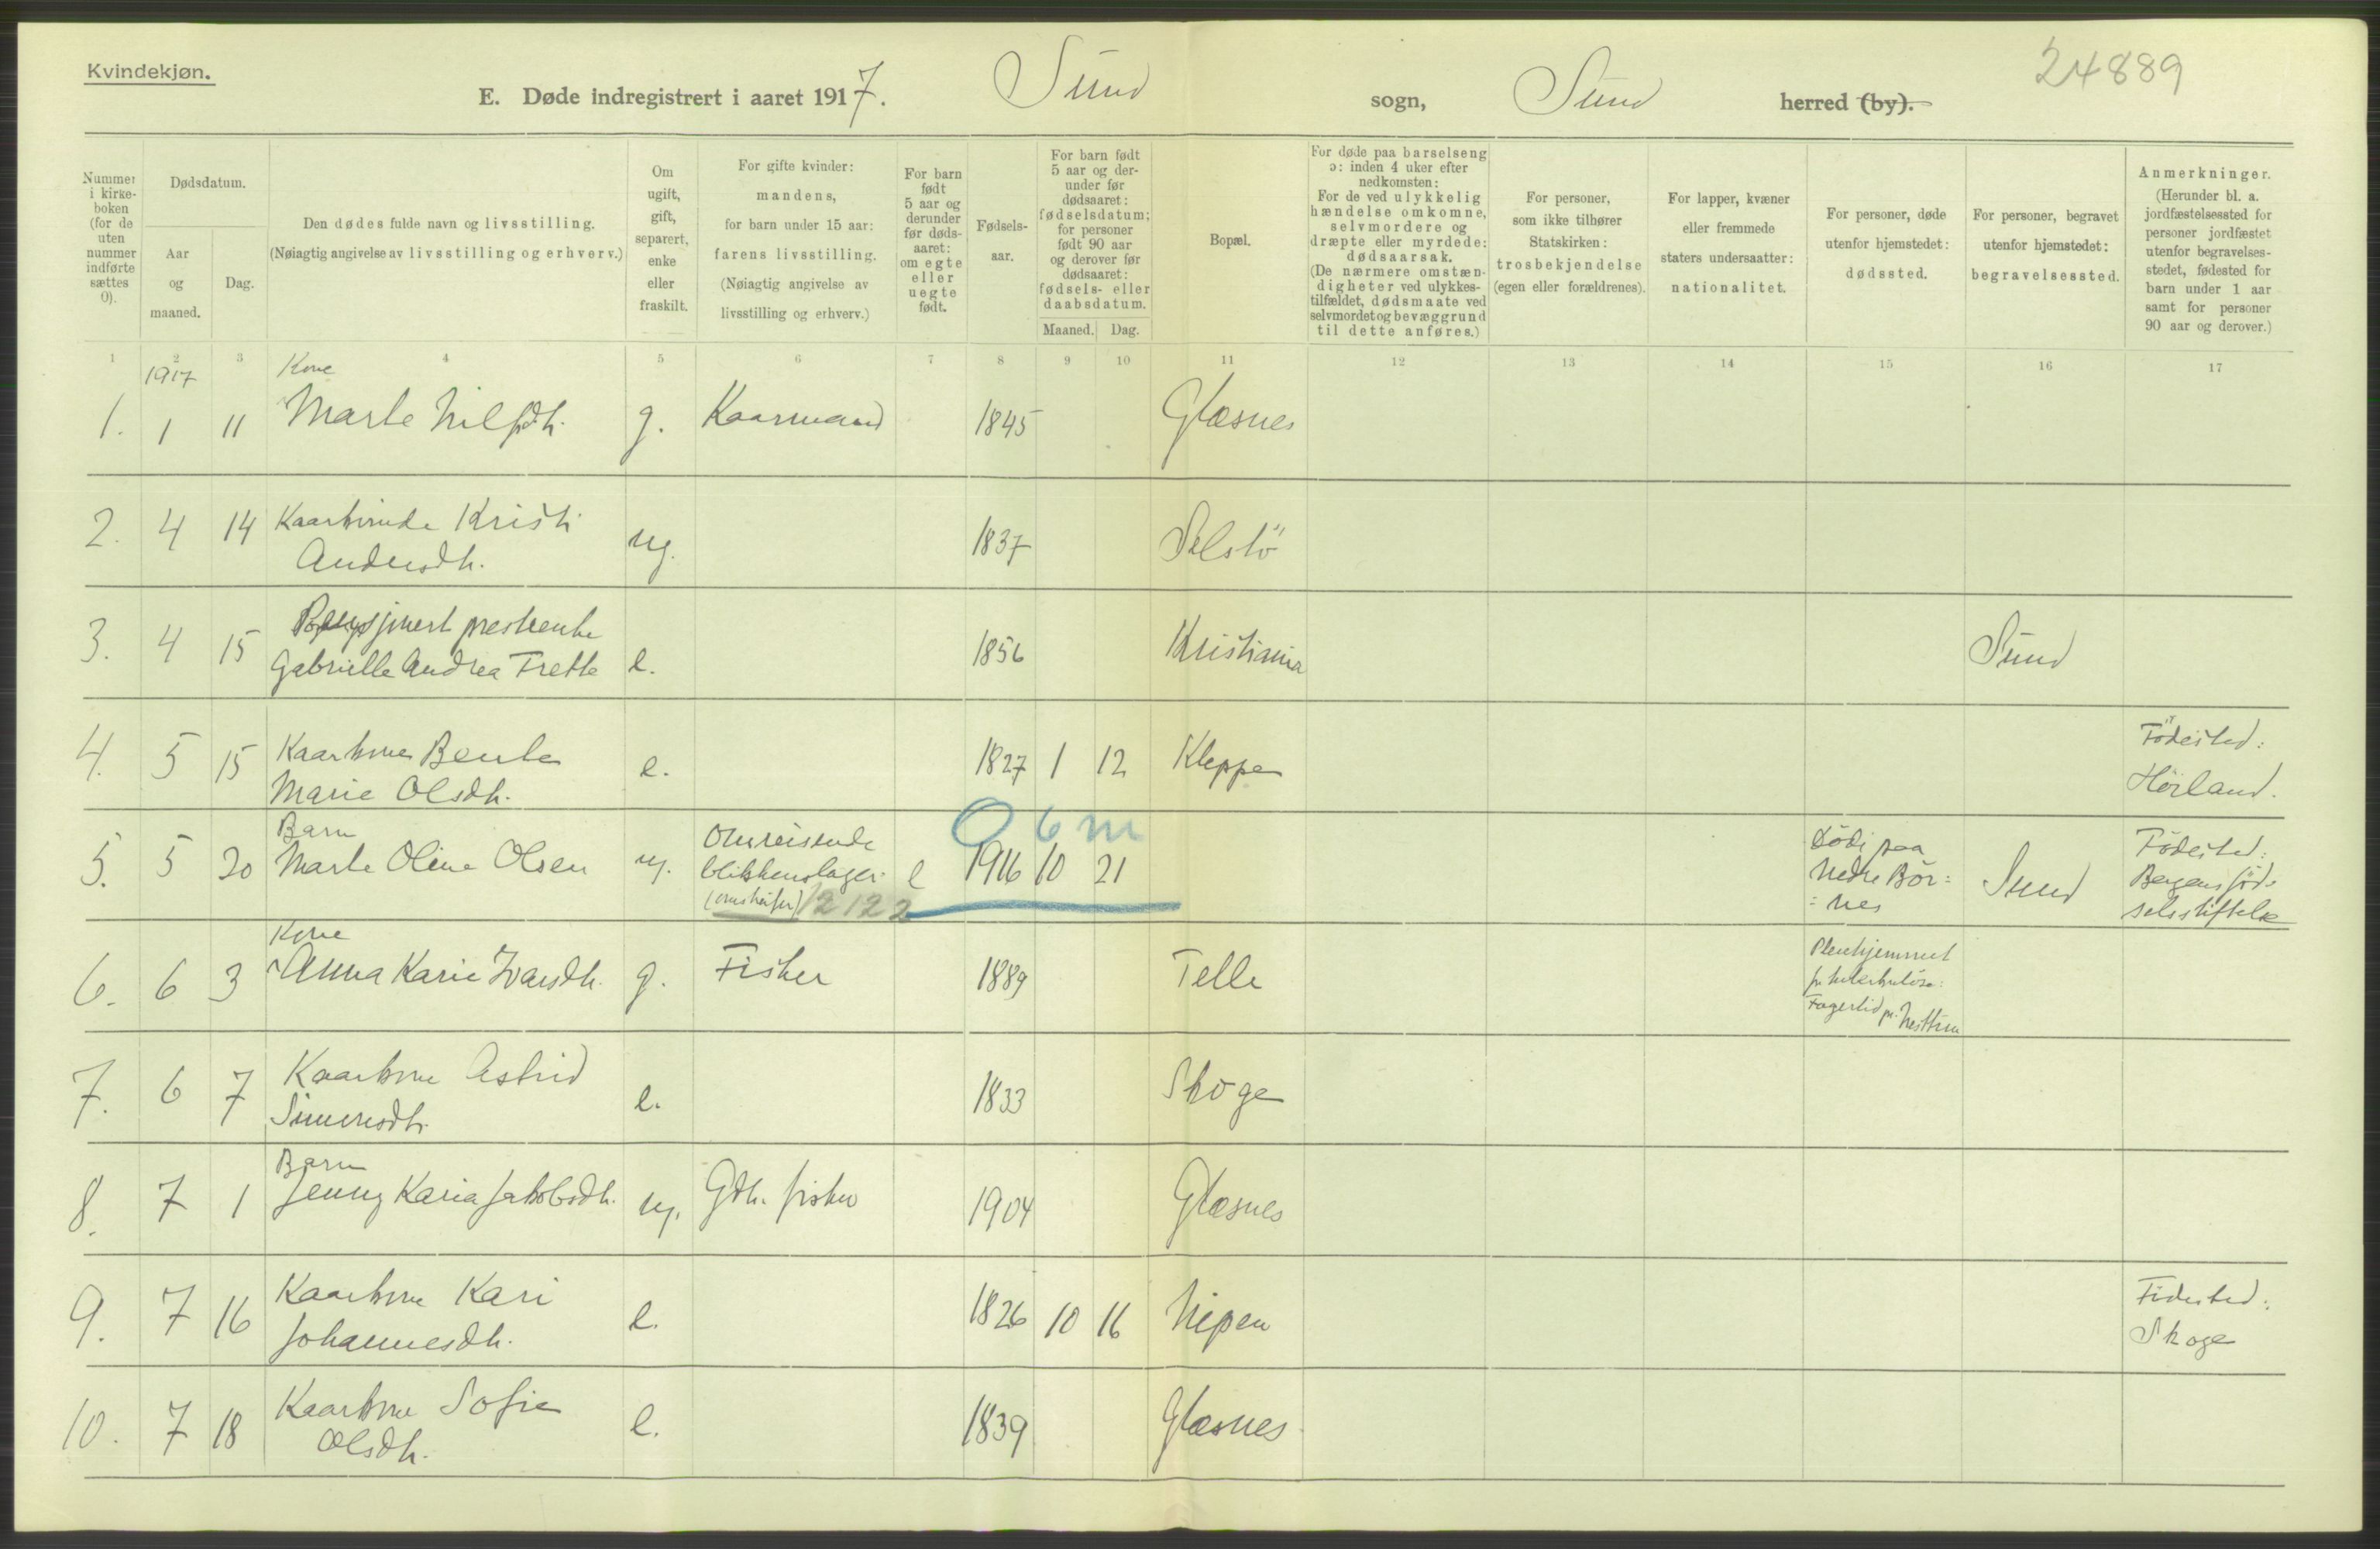 Kvindekjøn.
E. Døde indregistrert i aaret 1917. Sund sogn, Sund herred (by).
24889
Nummer i kirkeboken (for de uten nummer indførte sættes 0).
Dødsdatum.
Aar og maaned.
Dag.
Den dødes fulde navn og livsstilling.
(Nøiagtig angivelse av livsstilling og erhverv.)
Om ugift, gift, separert, enke eller fraskilt.
For gifte kvinder: mandens, for barn under 15 aar: farens livsstilling. (Nøiagtig angivelse av livsstilling og erhverv.)
For barn født 5 aar og derunder før dødsaaret: om egte eller uegte født.
Fødselsaar.
For barn født 5 aar og derunder før dødsaaret: fødselsdatum; for personer født 90 aar og derover før dødsaaret: fødsels- eller daabsdatum.
Maaned. Dag.
Bopæl.
For døde paa barselseng ɔ: inden 4 uker efter nedkomsten: For de ved ulykkelig hændelse omkomne, selvmordere og dræpte eller myrdede: dødsaarsak. (De nærmere omstændigheter ved ulykkestilfældet, dødsmaate ved selvmordet og bevæggrund til dette anføres.)
For personer, som ikke tilhører Statskirken: trosbekjendelse (egen eller forældrenes).
For lapper, kvæner eller fremmede staters undersaatter: nationalitet.
For personer, døde utenfor hjemstedet: dødssted.
For personer, begravet utenfor hjemstedet: begravelsessted.
Anmerkninger. (Herunder bl. a. jordfæstelsessted for personer jordfæstet utenfor begravelsesstedet, fødested for barn under 1 aar samt for personer 90 aar og derover.)
1 2 3 4 5 6 7 8 9 10 11 12 13 14 15 16 17
1917 Kone
1. 1 11 Marte Nilsdh. g. Kaarmand 1845 Glæsnes
2. 4 14 Kaarkvinde Kristi
Andersdh. ug. 1837 Selstö
3. 4 15 prestenke
Gabrielle Andrea Frette e. 1856 Kristiania Sund
4. 5 15 Kaarkone Bente
Marie Olsdh. e. 1827 1 12 Kleppe Födested:
Hörland.
0 6 m
5. 5 20 Barn
Marte Oline Olsen ug. Omreisende
blikkenslager
(omstreifer) 2122 e 1916 10 21 Döde paa
Nedre Bör=
=nes Sund Födested:
Bergens föd-
selsstiftelse
6. 6 3 Kone
Anna Karie Ivarsdh. g. Fisker 1889 Telle Pleiehjemmet
for tuberkulöse:
Fagerlid pr. Nesttun
7. 6 7 Kaarkone Astrid
Simonsdh. e. 1833 Skoge
8. 7 1 Barn
Jenny Karia Jakobsdh. ug. Gdb. fisker 1904 Glæsnes
9. 7 16 Kaarkone Kari
Johannesdh. e. 1826 10 16 Nipen Födested:
Skoge
10. 7 18 Kaarkone Sofie
Olsdh. e. 1839 Glæsnes